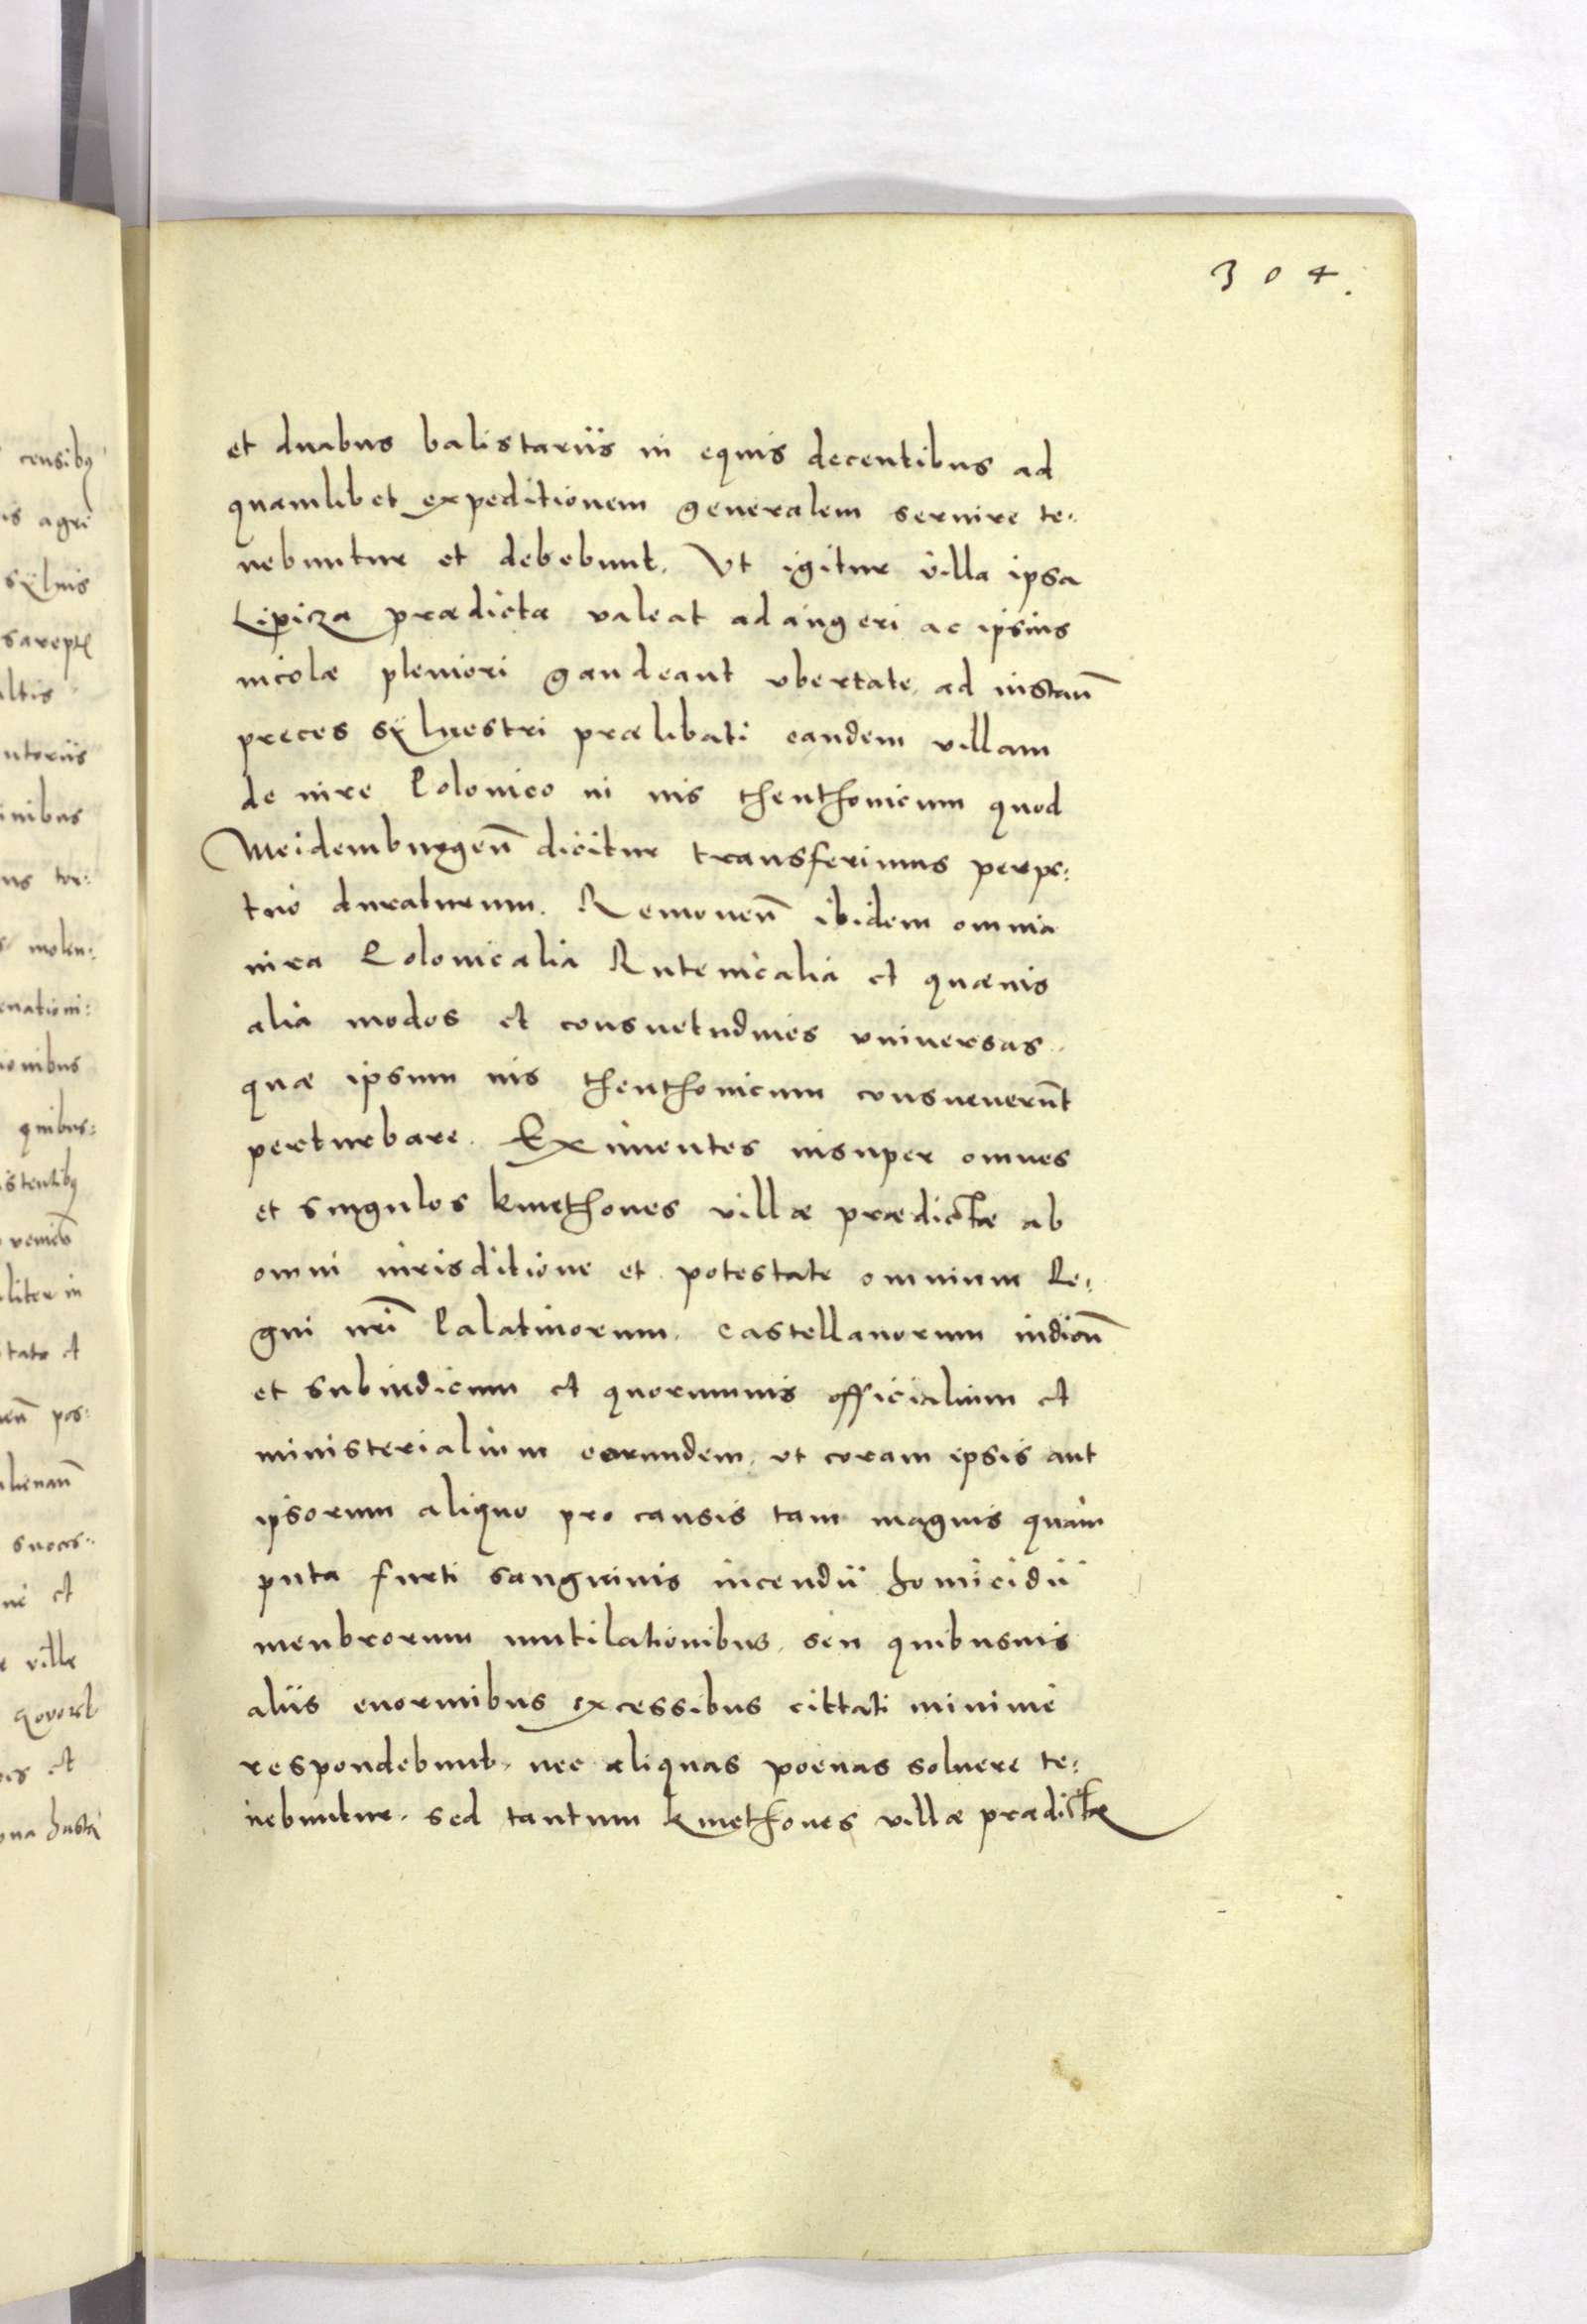 304.
et duabus balistariis in equis decentibus ad
quamlibet expeditionem generalem seruire te:
nebuntur et debebunt. Vt igitur villa ipsa
Lipicza prædicta valeat adaugeri ac ipsius
incolæ pleniori gaudeant vbertate, ad instan̄
preces Sÿluestri prælibati eandem villam
de iure Polonico in ius thenthonicum quod
Meidemburgen̄ dicitur transferimus perpe:
tuo duraturum. Remouen̄ ibidem omnia
iura Polonicalia Rutenicalia et quæuis
alia modos et consuetudines vniuersas
quæ ipsum ius thenthonicum consueuerūt
perturbare. Eximentes insuper omnes
et singulos kmethones villæ prædictæ ab
omni iurisditione et potestate omnium Re:
gni nr̄i Palatinorum, castellanorum iudicū
et subiudicum et quorumuis officialium et
ministerialium eorundem, vt coram ipsis aut
ipsorum aliquo pro causis tam magnis quàm
puta furti sanguinis incendii homicidii
menbrorum mutilationibus, seu quibusuis
aliis enormibus excessibus cittati minimè
respondebunt, nec aliquas poenas soluere te:
nebuntur. sed tantum kmethones villæ prædictæ
censibꝫ
is agri
sÿluis
ultis
inibus
molen:
ionibus
quibus:
liter in
tate et
succes:
villæ